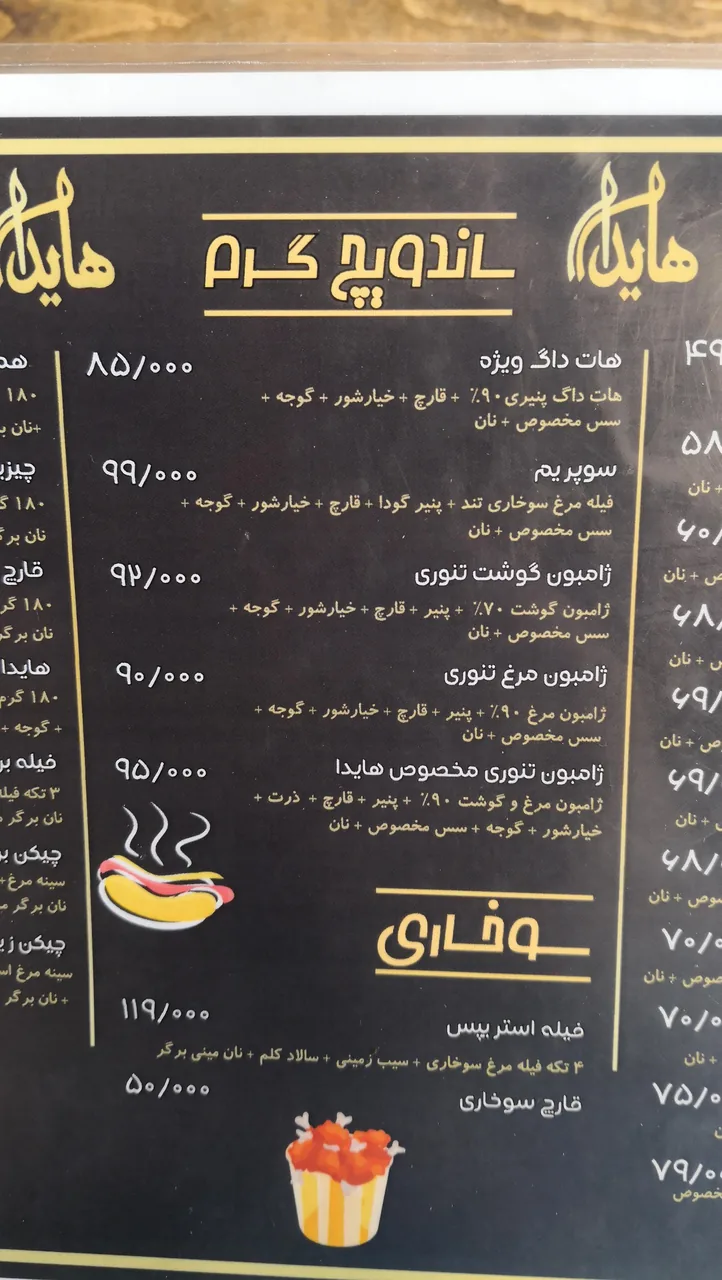 هایدا
ساندویچ گرم
هایدا
هات داگ ویژه ۸۵/۰۰۰
هات داگ پنیری ۹۰٪ + قارچ + خیارشور + گوجه +
سس مخصوص + نان
سوپریم ۹۹/۰۰۰
فیله مرغ سوخاری تند + پنیر گودا + قارچ + خیارشور + گوجه +
سس مخصوص + نان
ژامبون گوشت تنوری ۹۲/۰۰۰
ژامبون گوشت ۷۰٪ + پنیر + قارچ + خیارشور + گوجه +
سس مخصوص + نان
ژامبون مرغ تنوری ۹۰/۰۰۰
ژامبون مرغ ۹۰٪ + پنیر + قارچ + خیارشور + گوجه +
سس مخصوص + نان
ژامبون تنوری مخصوص هایدا ۹۵/۰۰۰
ژامبون مرغ و گوشت ۹۰٪ + پنیر + قارچ + ذرت +
خیارشور + گوجه + سس مخصوص + نان
سوخاری
فیله استریپس ۱۱۹/۰۰۰
۴ تکه فیله مرغ سوخاری + سیب زمینی + سالاد کلم + نان مینی برگر
قارچ سوخاری ۵۰/۰۰۰
۱۸۰
+نان
۱۸۰
قارچ
۱۸۰
نان
هایدا
۱۸۰ گرم
+ گوجه +
فیله
۳ تکه فیله
نان برگر
چیکن
سینه مرغ+
نان برگر
چیکن
سینه مرغ
+ نان برگر
+ نان
+ نان
+ نان
+ نان
+ نان
+ نان
+ نان
نان +